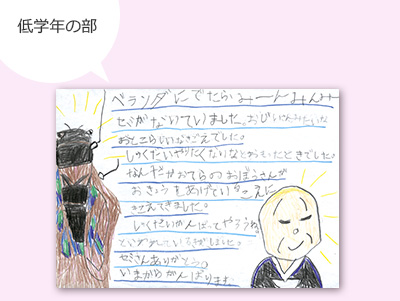 低学年の部
ベランダにでたらみーんみんみー
セミがないていました。おじいさんみたいな
おとこらしいなきごえでした。
しゅくだいやりたくないなとおもったときでした。
なんだかおてらのおぼうさんが
おきょうをあげているこえに
きこえてきました。
しくだいがんばってやろうね
といわれているきがしました。
セミさんありがとう。
いまからがんばります。